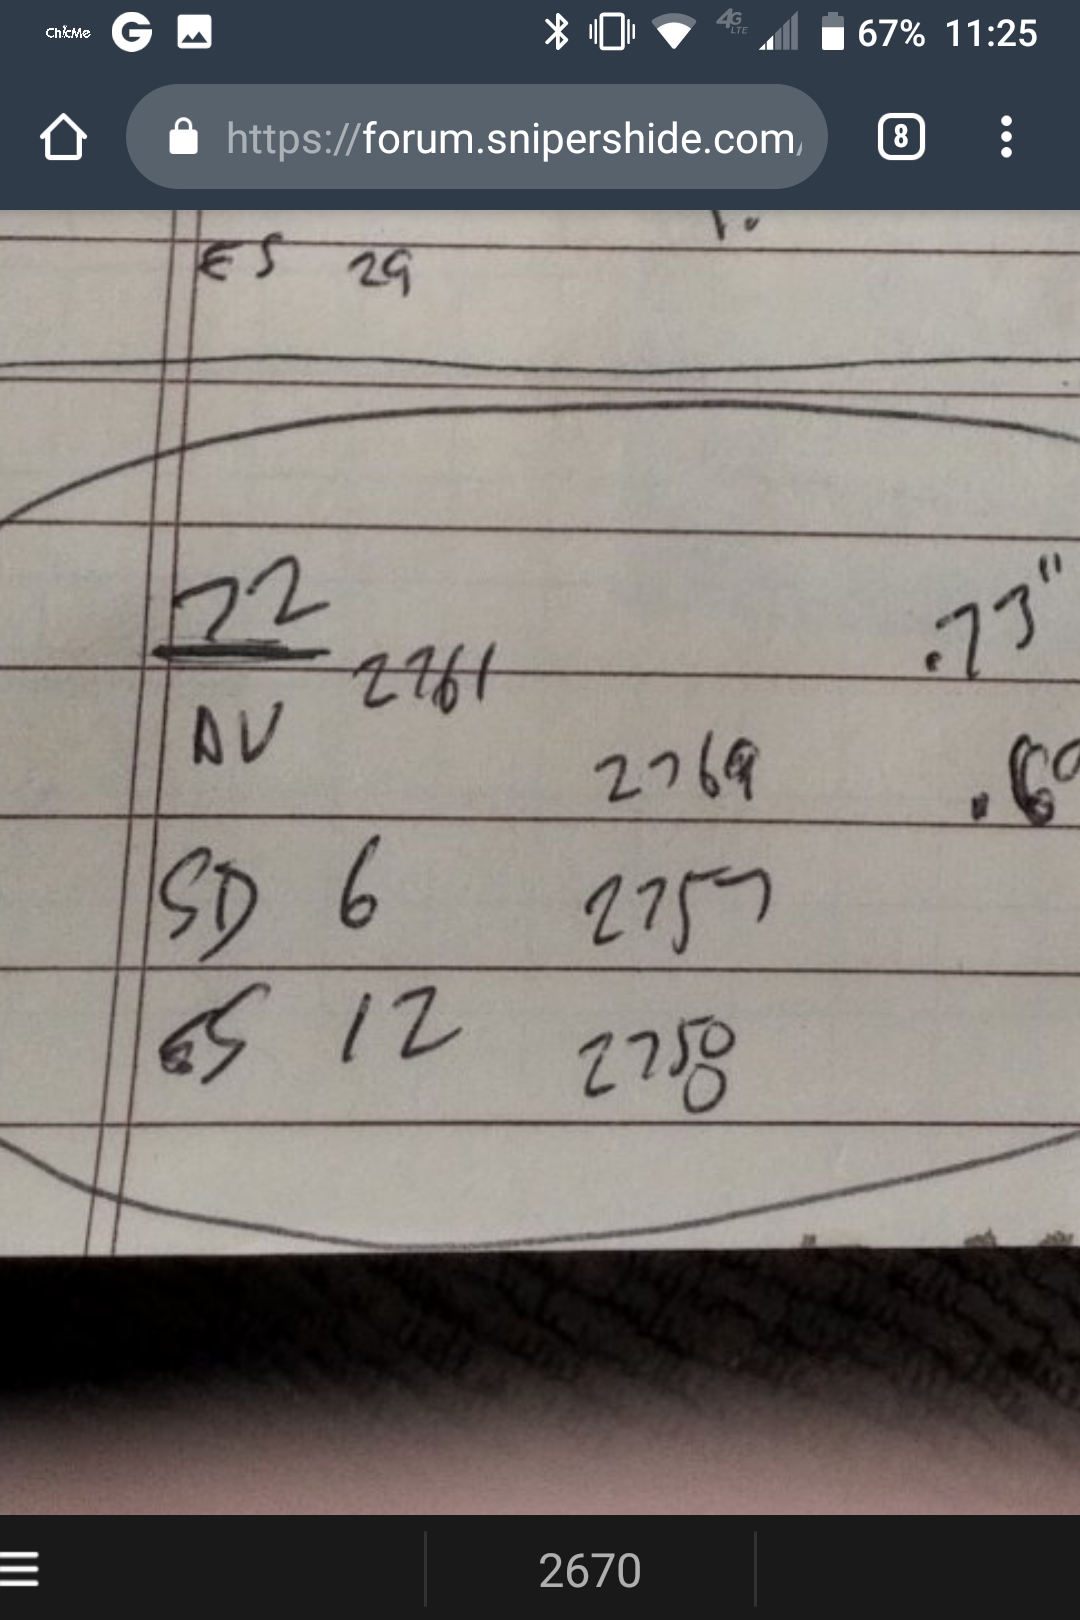 ChicMe G 4G LTE 67% 11:25
https://forum.snipershide.com/ 8
ES 29
22 .73"
AV 2761
2769
SD 6 2757
ES 12
2670